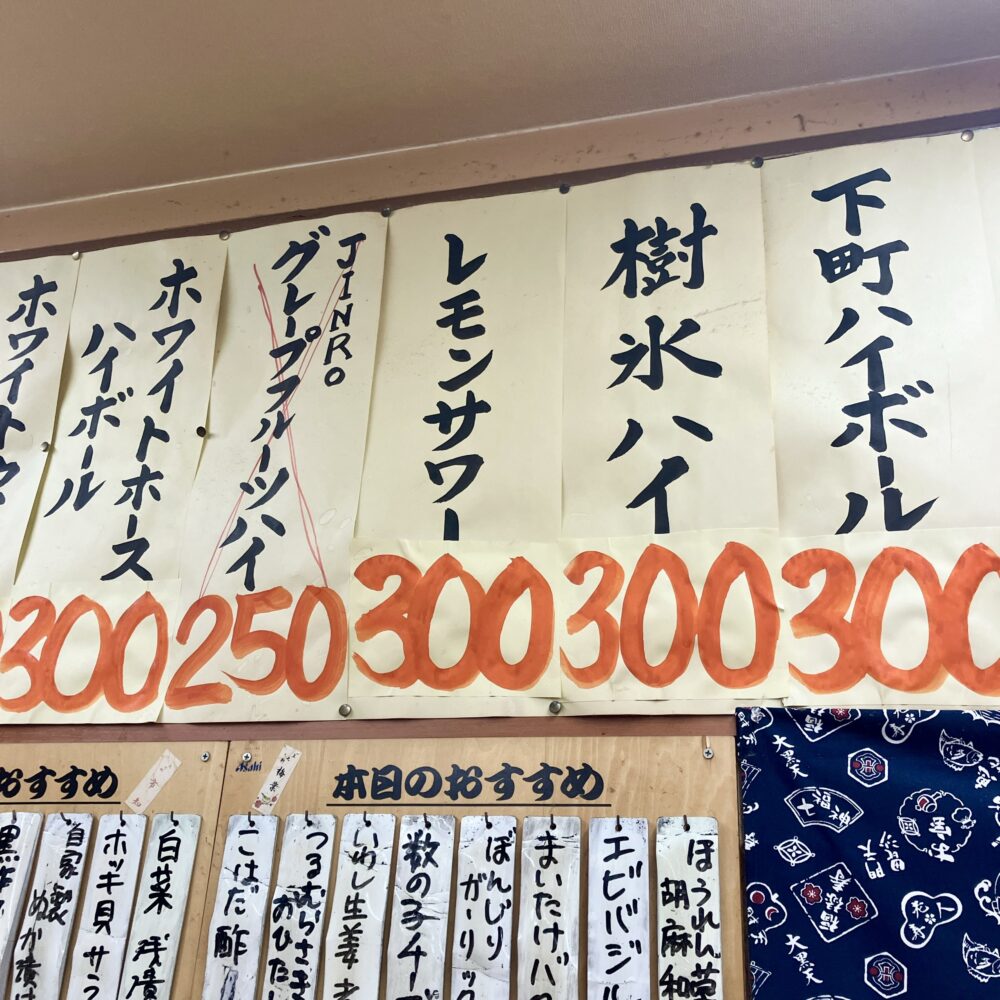 下町ハイボール
300
樹氷ハイ
300
レモンサワー
300
JINRO
グレープフルーツハイ
250
ホワイトホース
ハイボール
300
ホワイトホ
本日のおすすめ
Asahi
ほうれん草
胡麻和
エビバジル
まいたけバ
ぼんじり
ガーリック
数の子チーズ
いわし生姜煮
つるむらさき
おひたし
こはだ酢
おすすめ
白菜
浅漬
ホッキ貝サラ
自家製
ぬか漬け
大黒天
福禄寿
大黒天